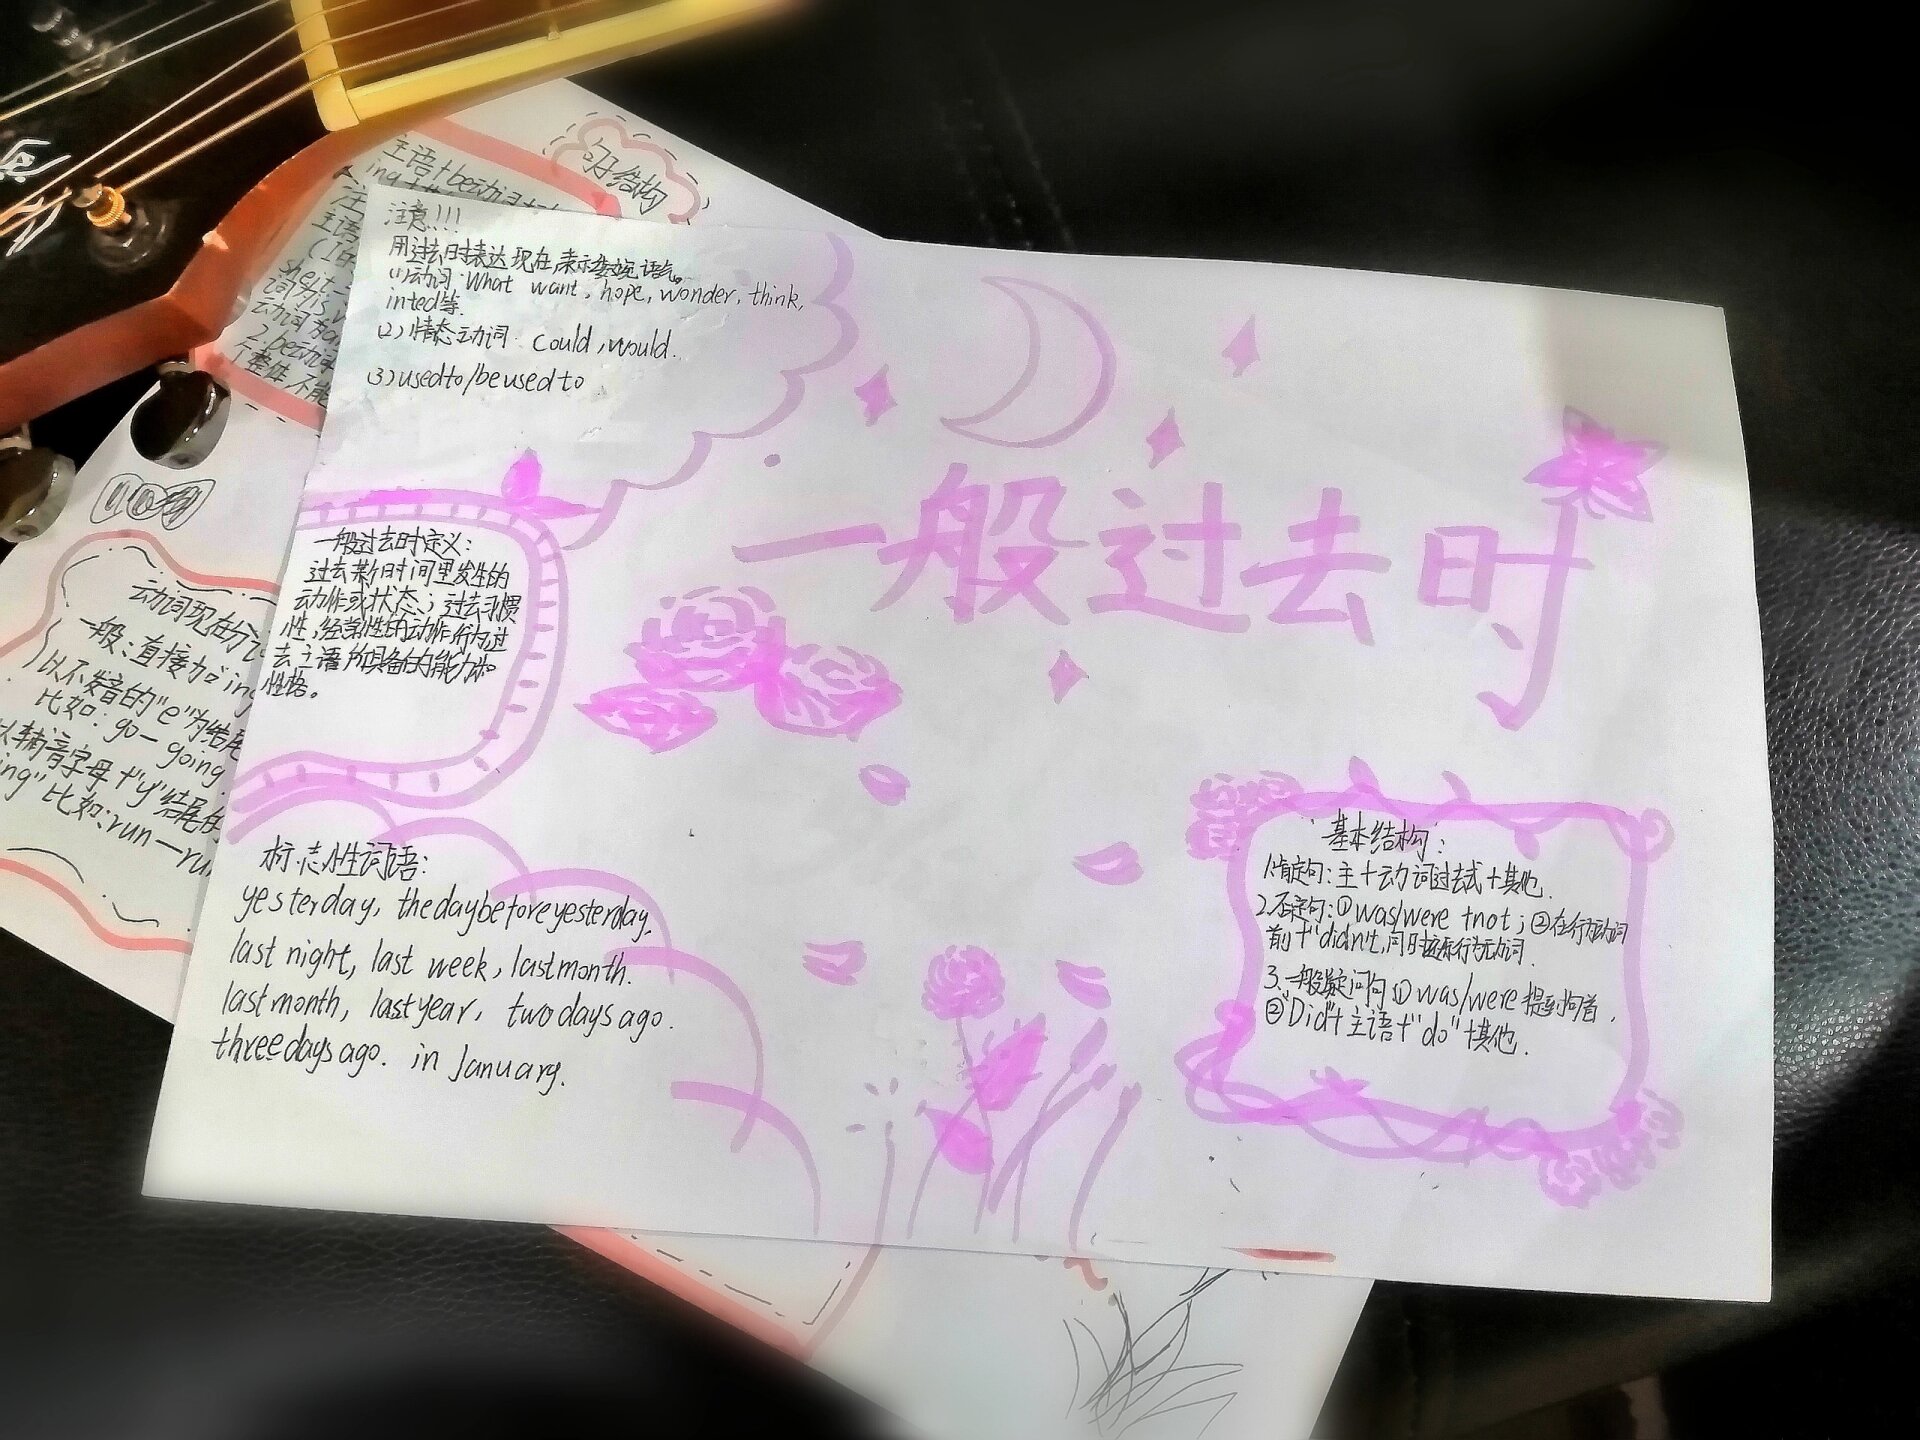 句子结构
主语+be动词
注意!!!
用过去时表达现在,表示委婉语气。
(1)动词:What want, hope, wonder, think,
inted等.
(2)情态动词 could, would.
(3)used to/be used to
一般过去时
一般过去时定义:
过去某个时间里发生的
动作或状态;过去习惯
性,经常性的动作行为过
去主语所具备的能力和
性格。
标志性词语:
yesterday, the day before yesterday,
last night, last week, last month.
last month, last year, two days ago.
three days ago. in January.
基本结构:
1.肯定句:主+动词过去式+其他.
2.否定句:①was/were +not;②在行为动词
前+"didn't,同时还原行为动词.
3.一般疑问句①was/were提到句首,
②"Did"+主语+"do"+其他.
动词现在分词
一般:直接加ing
以不发音的"e"为结尾
比如:go—going
以辅音字母+"y"结尾的
ing"比如:run—run